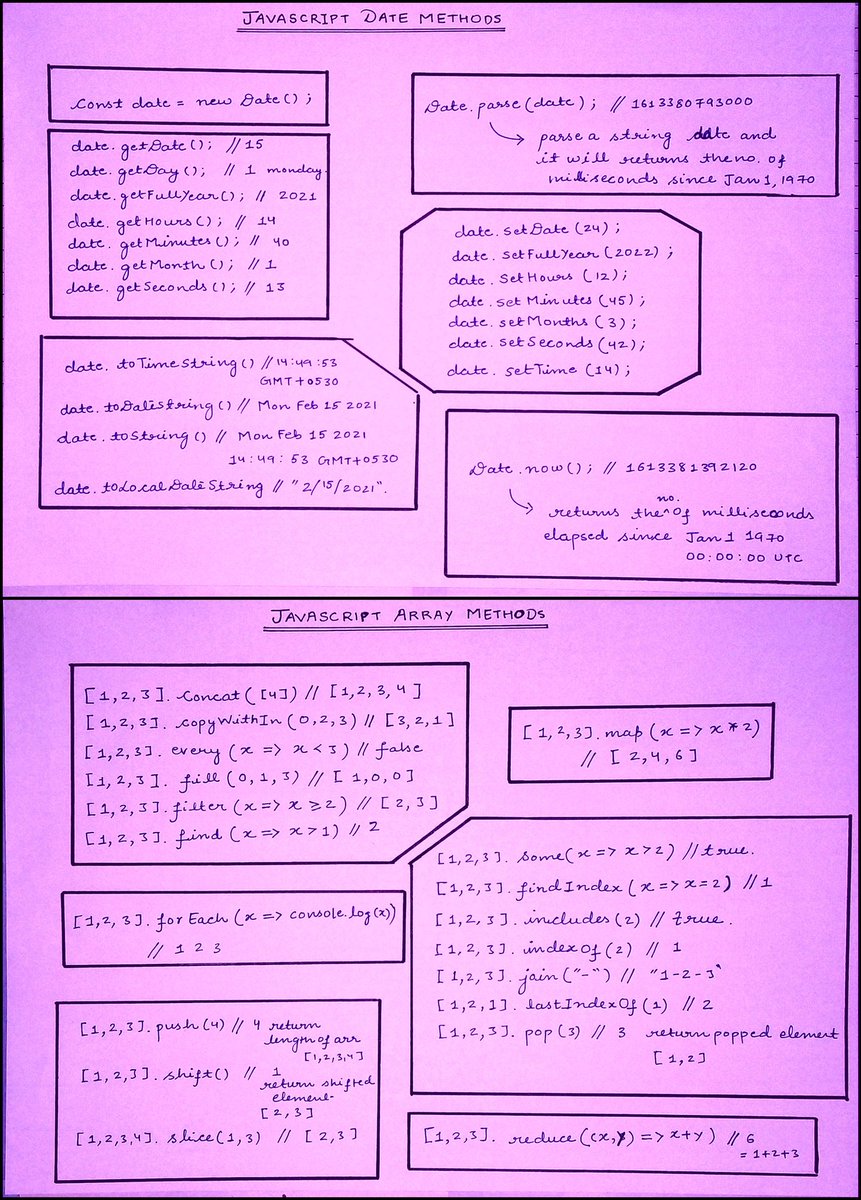 JAVASCRIPT DATE METHODS
Const date = new Date();
date.getDate(); // 15
date.getDay(); // 1 monday.
date.getFullYear(); // 2021
date.getHours(); // 14
date.getMinutes(); // 40
date.getMonth(); // 1
date.getSeconds(); // 13
date.toTimeString() // 14:49:53
GMT+0530
date.toDateString() // Mon Feb 15 2021
date.toString() // Mon Feb 15 2021
14:49:53 GMT+0530
date.toLocalDateString // "2/15/2021".
Date.parse(date); // 1613380793000
parse a string date and
it will returns the no. of
milliseconds since Jan 1, 1970
date.setDate(24);
date.setFullYear(2022);
date.setHours(12);
date.setMinutes(45);
date.setMonths(3);
date.setSeconds(42);
date.setTime(14);
Date.now(); // 1613381392120
returns the no. of milliseconds
elapsed since Jan 1 1970
00:00:00 UTC
JAVASCRIPT ARRAY METHODS
[1,2,3].concat([4]) // [1,2,3,4]
[1,2,3].copyWithIn(0,2,3) // [3,2,1]
[1,2,3].every(x => x<3) // false
[1,2,3].fill(0,1,3) // [1,0,0]
[1,2,3].filter(x => x≥2) // [2,3]
[1,2,3].find(x => x>1) // 2
[1,2,3].forEach(x => console.log(x))
// 1 2 3
[1,2,3].push(4) // 4 return
length of arr
[1,2,3,4]
[1,2,3].shift() // 1
return shifted
element
[2,3]
[1,2,3,4].slice(1,3) // [2,3]
[1,2,3].map(x => x*2)
// [2,4,6]
[1,2,3].some(x => x>2) // true.
[1,2,3].findIndex(x => x=2) // 1
[1,2,3].includes(2) // true.
[1,2,3].indexOf(2) // 1
[1,2,3].join("-") // "1-2-3"
[1,2,1].lastIndexOf(1) // 2
[1,2,3].pop(3) // 3 return popped element
[1,2]
[1,2,3].reduce((x,y) => x+y) // 6
= 1+2+3